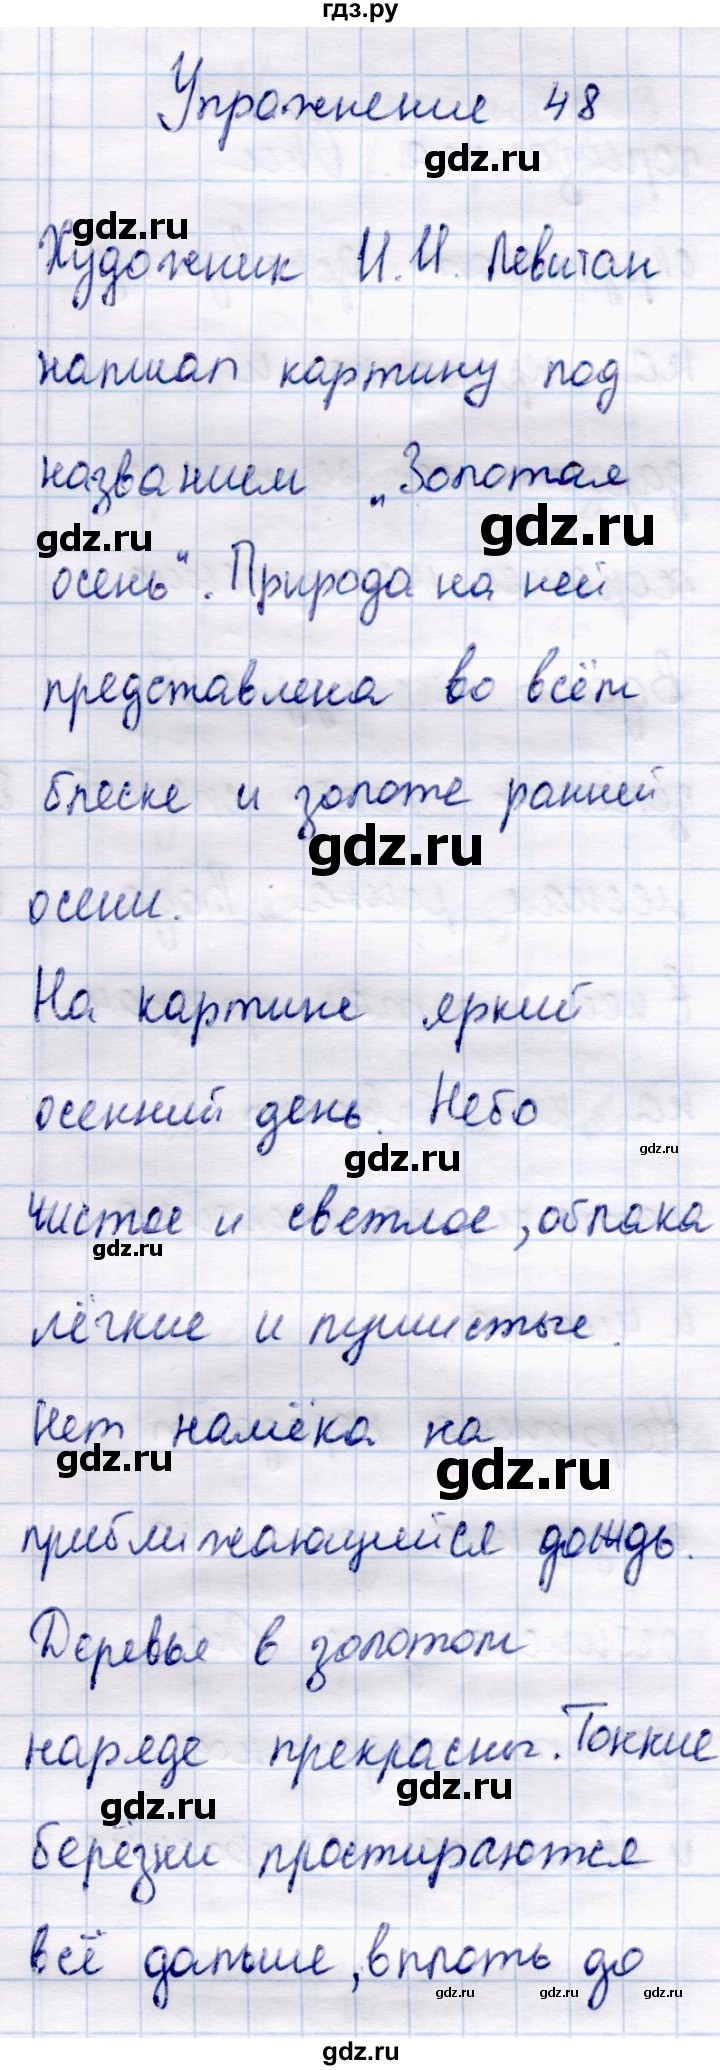 гдз.ру
Упражнение 48
gdz.ru
gdz.ru
Художник И.И. Левитан
написал картину под
названием „Золотая
gdz.ru
gdz.ru
осень“. Природа на ней
представлена во всём
блеске и золоте ранней
gdz.ru
осени.
На картине яркий
осенний день. Небо
gdz.ru
gdz.ru
чистое и светлое, облака
gdz.ru
лёгкие и пушистые.
Нет намёка на
gdz.ru
gdz.ru
приближающийся дождь.
Деревья в золотом
наряде прекрасны. Тонкие
gdz.ru
gdz.ru
берёзки простираются
всё дальше, вплоть до
gdz.ru
gdz.ru
gdz.ru
gdz.ru